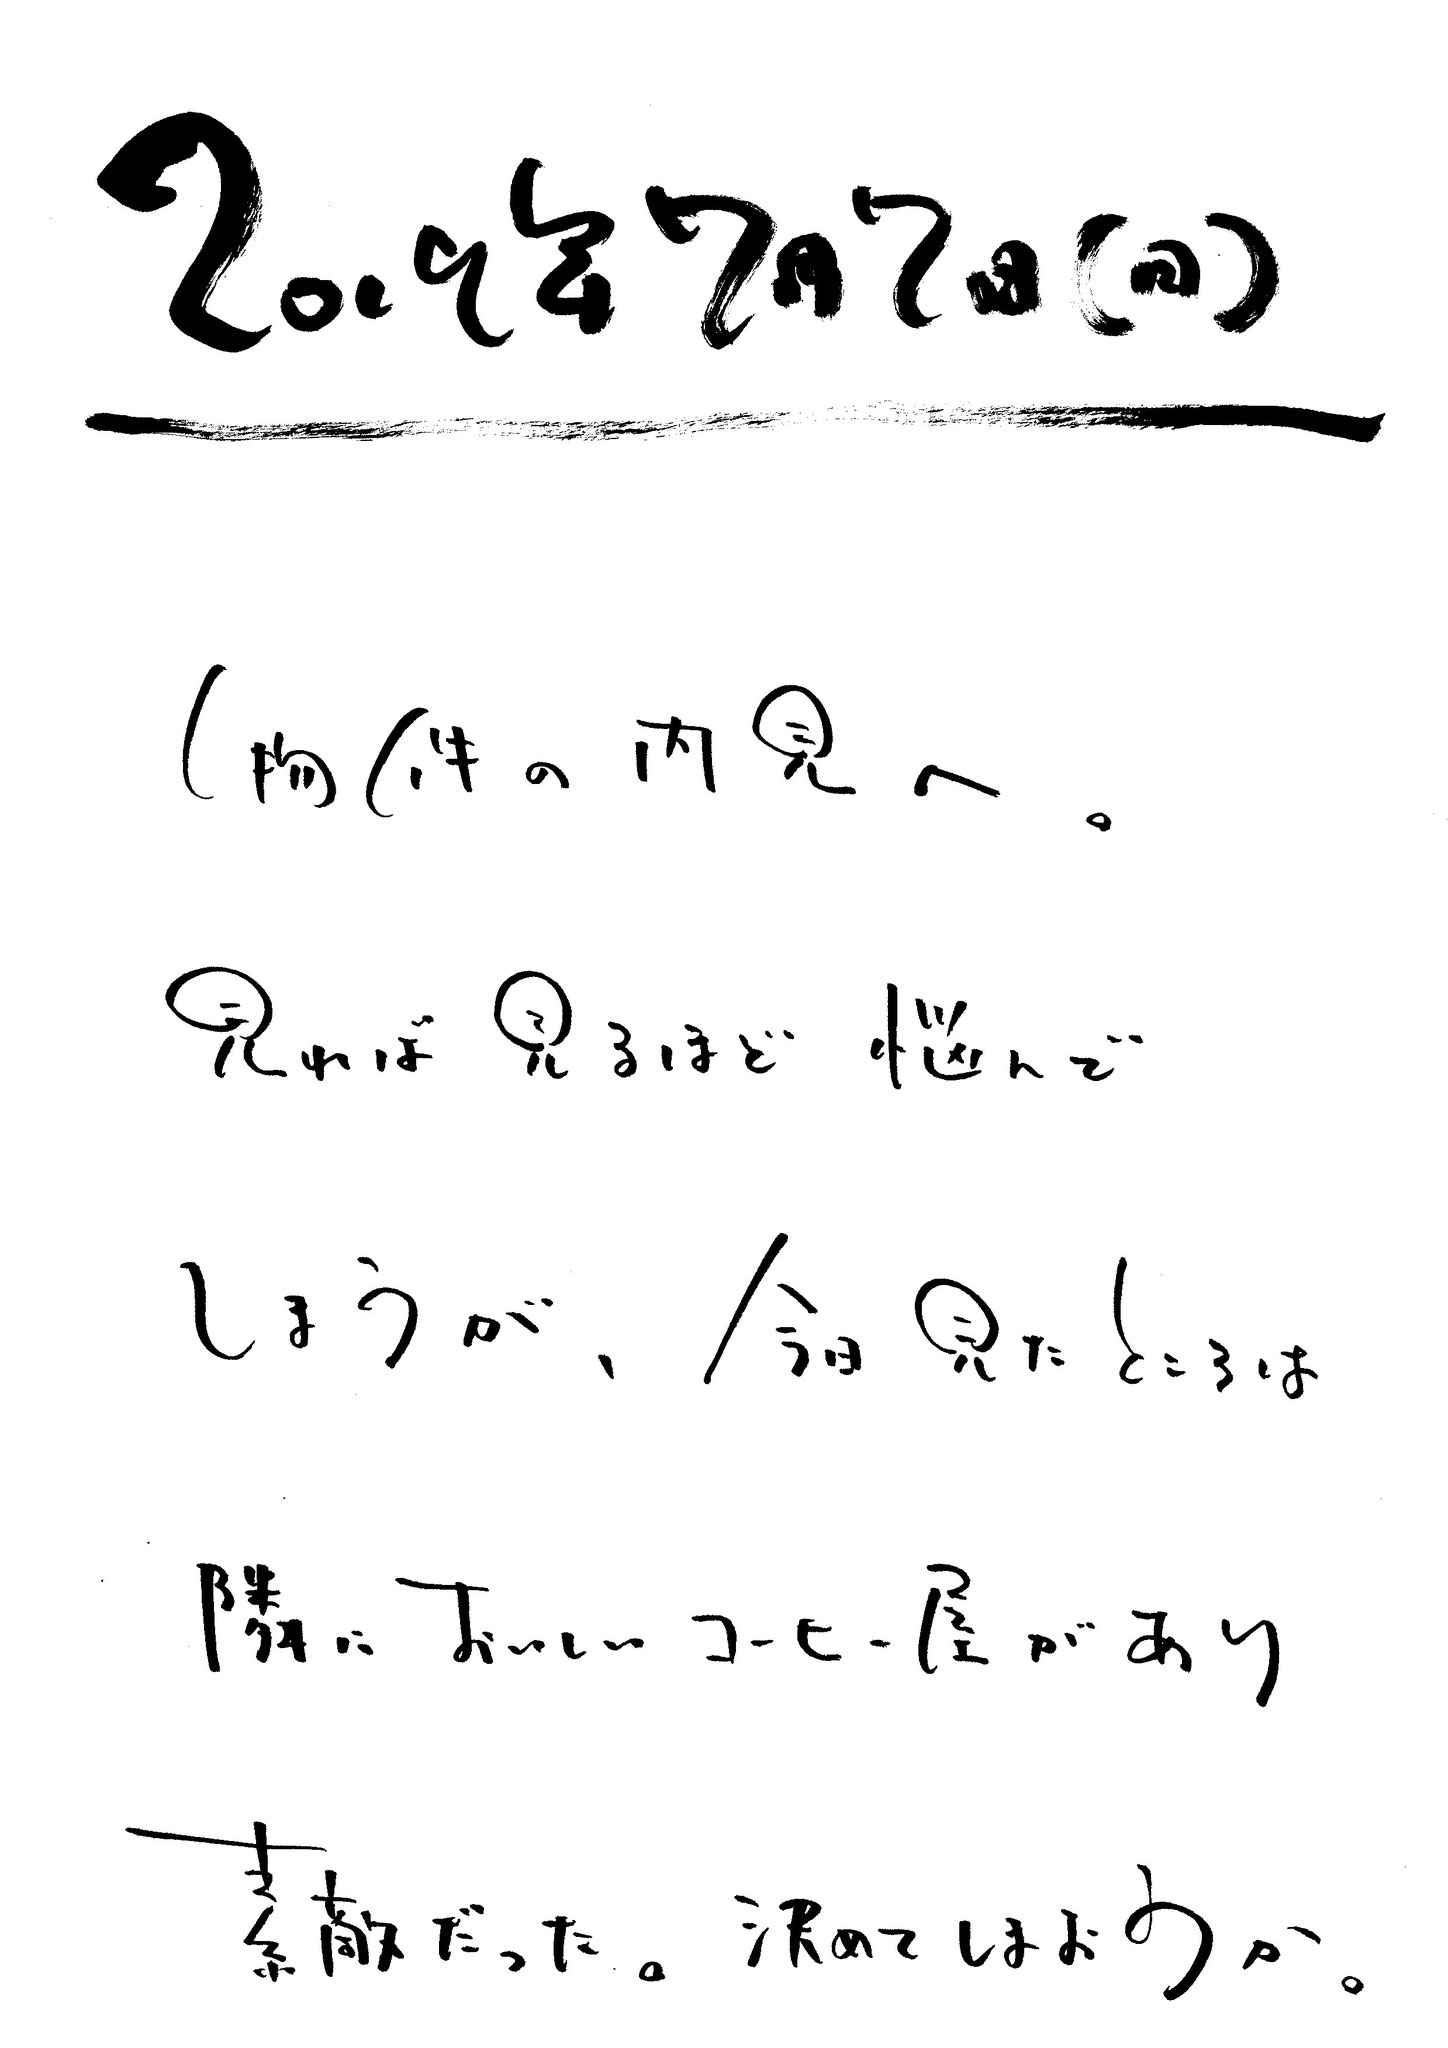 2019年7月7日(日)
物件の内見へ。
見れば見るほど悩んで
しまうが、今日見たところは
隣においしいコーヒー屋があり
素敵だった。決めてしまおうか。